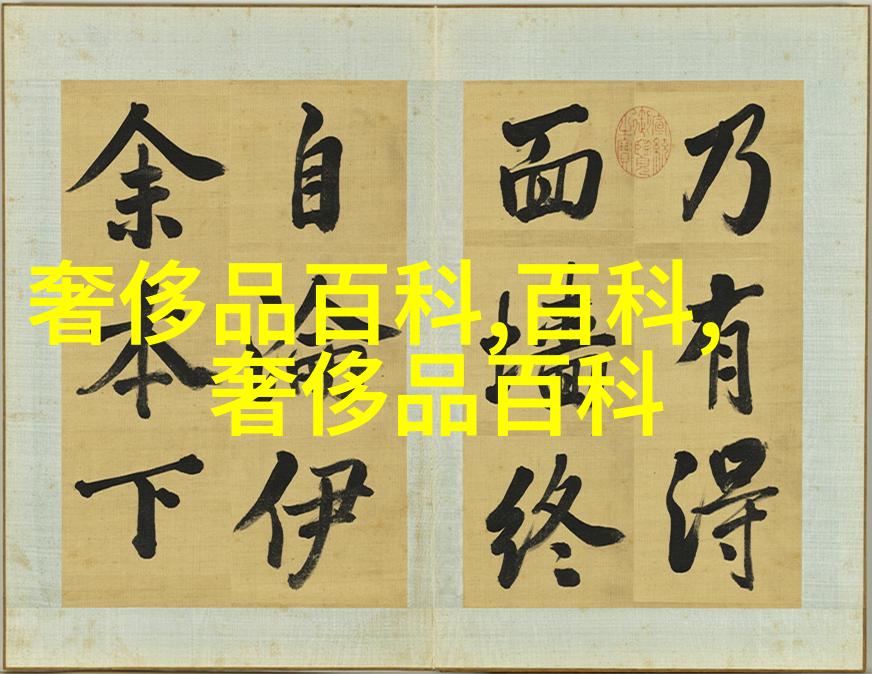 奢侈品百科,百科,
奢侈品百科
乃有得
面墻終
自伊
余本下